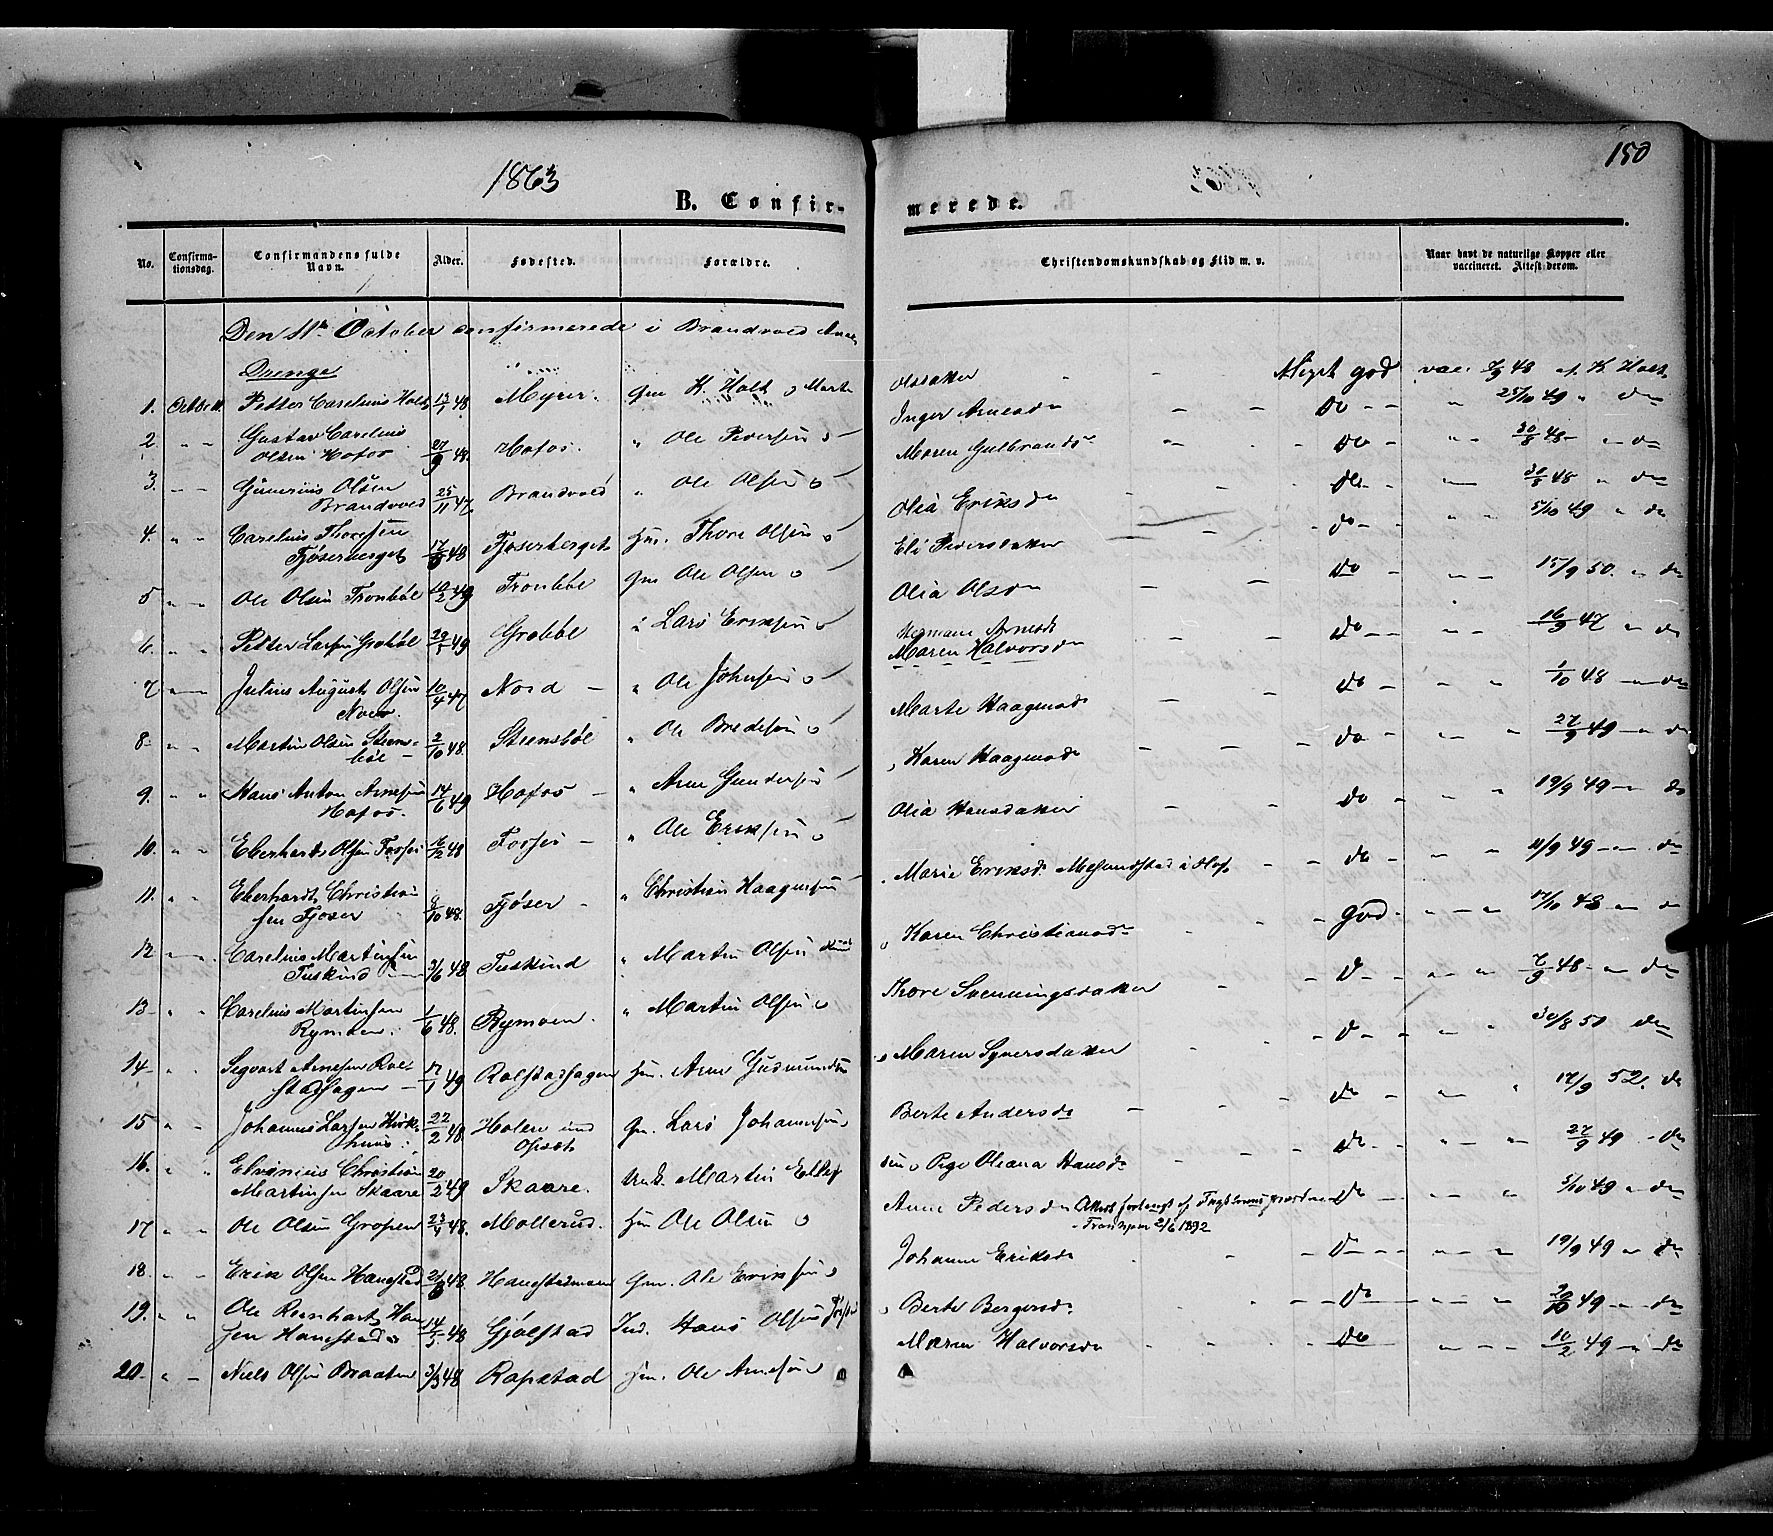 1863
150
B. Confir-
merede.
No.
Confirma-
tionsdag.
Confirmandens fulde
Navn.
Alder.
Fødested.
Forældre.
Christendomskundskab og Flid m. v.
Naar havt de naturlige Kopper eller
vaccineret. Attest derom.
Den 11te October confirmerede i Brandvold
Drenge
1. Octbr 11. Petter Carelius Holt 13/1 48. Myrer. Gm K. Holt o Marte
Olsdatter - - Meget god vac. 7/9 48 af K. Holt
2. " " Gustav Carelius
Olsen Hofos 27/9 48. Hofos. " Ole Pedersen o
Inger Arnesdr - - Do - - " 25/10 49 " do
3. - - Gunerius Olsen
Brandvold 25/11 47. Brandvold " Ole Olsen o
Maren Gulbrandsdr - - Do - " " 30/8 48 - " do
4. " " Carelius Thoresen
Tjøserberget 17/8 48 Tjøserberget Hm. Thore Olsen o
Olia Eriksdr - - do - " 30/8 48 " do
5 " " Ole Olsen Tronbøl 10/2 49 Tronbøl Gm Ole Olsen o
Eli Pedersdatter - - do - - " " 5/10 49 " do
6. " " Petter Larsen Grøbøl 29/1 49 Grøbøl " Lars Eriksen o
Olia Olsdr - - Do " - 15/9 50. " do
7 " - Julius August Olsen
Nord. 10/4 47 Nord - " Ole Johnsen o
Arnesdr
Maren Halvorsdr Do - - " - 16/9 47 " do
8 - " " Martin Olsen Steens-
bøl - 2/10 48. Steensbøl " Ole Bredesen o
Marte Haagensdr - do - - " 1/10 48 - " do
9. " " Hans Anton Arnesen
Hofos. 14/6 49 Hofos - " Arne Gundersen
Karen Haagensdr - - - do - - " " 27/9 49 - " do
10. " " Eberhardt Olsen Forsen 16/2 48 Forsen - " Ole Eriksen o
Olia Hansdatter - - do - " " 19/9 49 - " do
11. " " Eberhardt Christian
sen Tjøser 8/10 48. Tjøser - " Christian Haagensen
Marie Eriksdr i Hof - - do - " " 11/9 49 - " do
12 - " Carelius Martinsen
Tuskind 3/6 48 Tuskind " Martin Olsen
Karen Christiansdr - - - god - " - " 17/10 48 - " do
13 - " " Carelius Martinsen
Rymoen. 1/6 48. Rymoen. " Martin Olsen o
Thore Svenningsdatter - - do - - " " 7/9 48 - " do
14 - " " Segvart Arnesen Rol-
stadhagen - 17/1 49 Rolstadhagen Hm. Arne Gudmundsen
o Maren Syversdatter - - do - - " " 30/8 50 do
15 " " Johannes Larsen Kirke-
huus. 22/2 48 Holen und
Opset Gm. Lars Johannesen
Berte Andersdr - - - do - - " 17/9 52. do
16. " " Elvinius Christian
Martinsen Skaare 20/2 49 Skaare. Unk. Martin Ellef
sen o Pige Oleana Hansdr - - do - " - " 27/9 49 - do
17 " - Ole Olsen Gropen 23/4 48. Mollerud. Hm Ole Olsen o
Anne Pedersdr Attest forlangt af
Tronhjem 2/6 1892
Do - " - " 5/10 49 " do
18. " " Erik Olsen Haugstad 21/8 48. Haugstadmoen Gm. Ole Eriksen o
Johanne Eriksdr - - - do - - " - " 19/9 49 - " do
19. " " Ole Reinhart Han
sen Haugstad 14/3 48 Gjølstad Ind. Hans Olsen
o Berte Bergersdr - - - Do - " - " 20/10 49 - " do
20 - " - Niels Olsen Braaten 3/3 48 Rapstad Hm. Ole Arnesen o
Maren Halvorsdr - - - do - " - " 10/2 49 - " - do